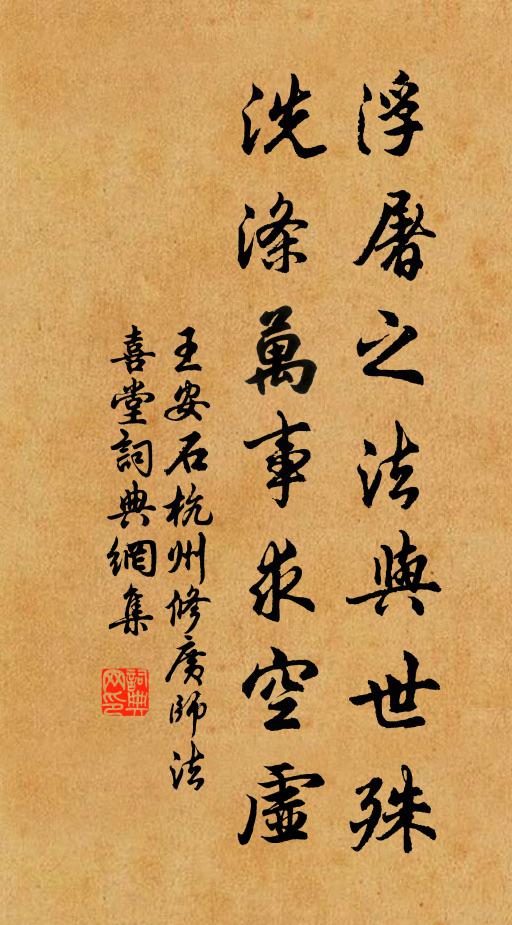 浮屠之法與世殊
洗滌萬事求空虛
王安石杭州修廣師法
喜堂詞典網集
詞典
网印